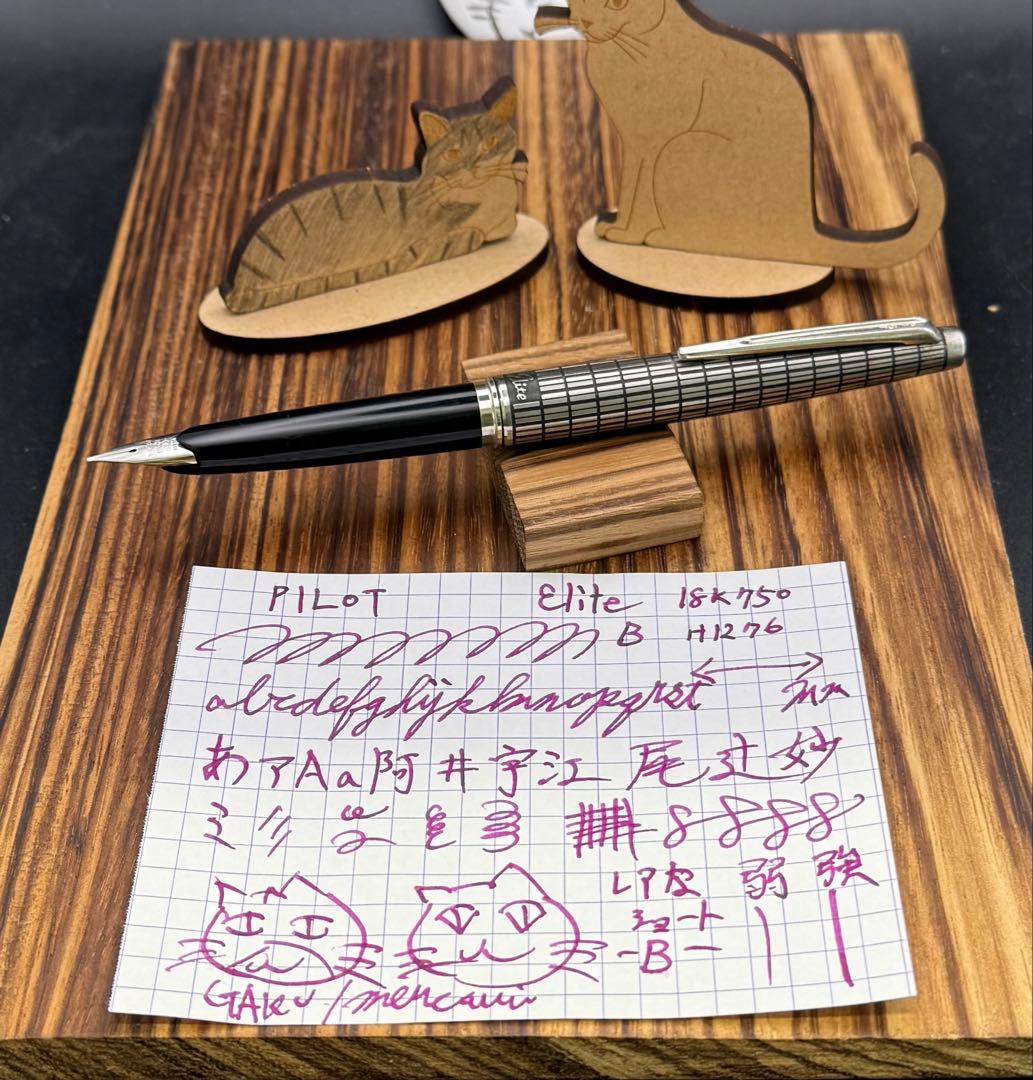 Elite
PILOT Elite 18K750
B H1276
abcdefghijklmnopqrst
あアAa阿井宇江尾辻妙
弱 強
ミュート
-B-
GAku/mercari